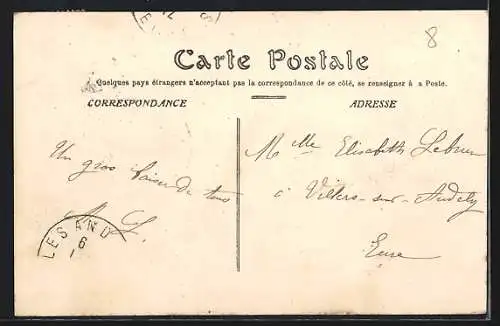 8
Carte Postale
Quelques pays étrangers n'acceptant pas la correspondance de ce côté, se renseigner à a Poste.
CORRESPONDANCE
ADRESSE
Un gros baiser de tous
LES AND
6
M Melle Elisabeth Lebrun
à Villers-sur-Andely
Eure